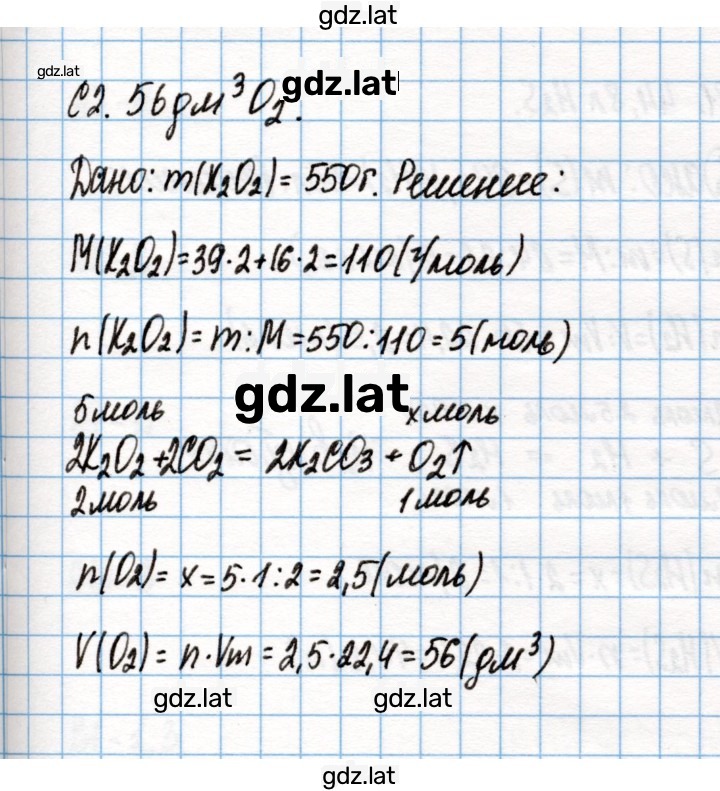 gdz.lat
gdz.lat
С2. 56 дм³ O₂.
gdz.lat
Дано: m(K₂O₂) = 550г. Решение:
M(K₂O₂) = 39·2+16·2 = 110 (г/моль)
n(K₂O₂) = m:M = 550:110 = 5 (моль)
gdz.lat
5 моль x моль
2K₂O₂ + 2CO₂ = 2K₂CO₃ + O₂↑
2 моль 1 моль
n(O₂) = x = 5·1:2 = 2,5 (моль)
V(O₂) = n·Vm = 2,5·22,4 = 56 (дм³)
gdz.lat gdz.lat
gdz.lat